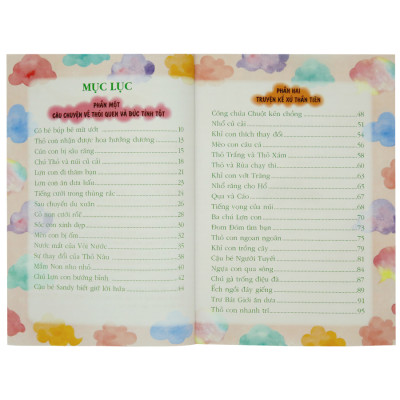 MỤC LỤC
PHẦN MỘT
CÂU CHUYỆN VỀ THÓI QUEN VÀ ĐỨC TÍNH TỐT
Cô bé búp bê mít ướt 10
Thỏ con nhận được hoa hướng dương
Cún con bị sâu răng
Chú Thỏ và núi củ cải
Lợn con đi thăm bạn 21
Lợn con ăn dưa hấu 25
Tiếng cười trong thùng rác 26
Sau chuyến du xuân
Sóc con xinh đẹp
Mèo con bị ốm
Nước mắt của Vòi Nước 35
Sự thay đổi của Thỏ Nâu
Mầm Non nho nhỏ
Chú lợn con bướng bỉnh
Cậu bé handy biết giữ lời hứa 44
PHẦN HAI
TRUYỆN KỂ XỨ THẦN TIÊN
Công chúa Chuột kén chồng 48
Nhổ củ cải 51
Khỉ con thích thay đổi 54
Mèo con câu cá
Thỏ Trắng và Thỏ Xám
Thỏ và Rùa chạy thi
Khỉ con vớt Trăng
Nhổ răng cho Hổ
Quạ và Cáo
Tiếng vọng của núi 68
Ba chú Lợn con 70
Đom Đóm tìm bạn 73
Thỏ con ngoan ngoãn
Khỉ con trồng cây 79
Cậu bé Người Tuyết
Ngựa con qua sông 84
Chú gà trống điệu đà 87
Ếch ngồi đáy giếng
Trư Bát Giới ăn dưa
Thỏ con nhanh trí 95